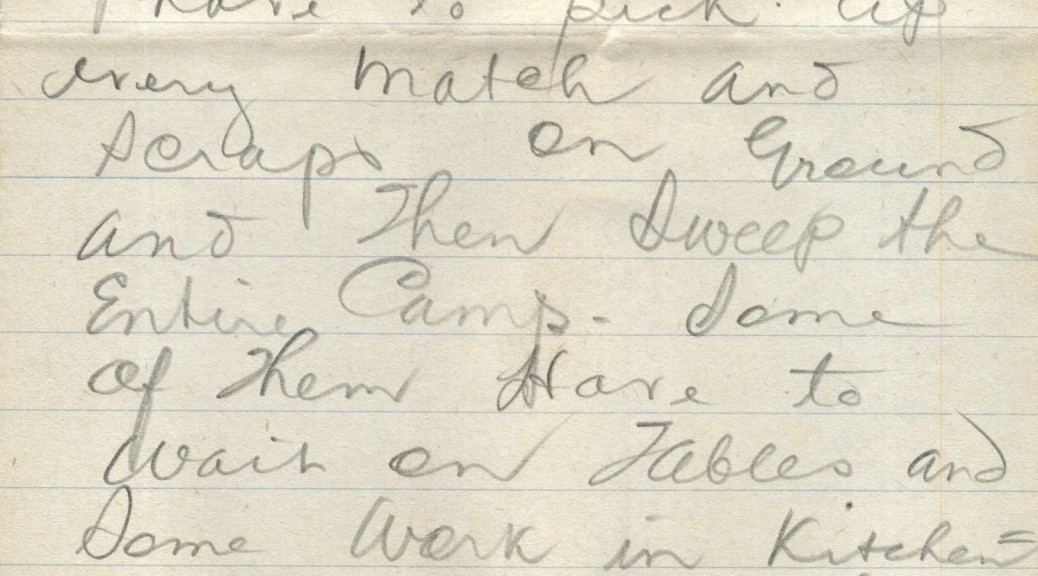 have to pick up
every match and
Scraps on Ground
and Then Sweep the
Entire Camp - Some
of Them Have to
wait on Tables and
Some Work in Kitchen =